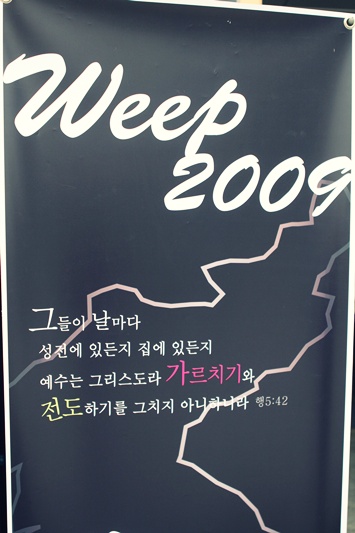 Weep
2009
그들이 날마다
성전에 있든지 집에 있든지
예수는 그리스도라 가르치기와
전도하기를 그치지 아니하니라 행5:42